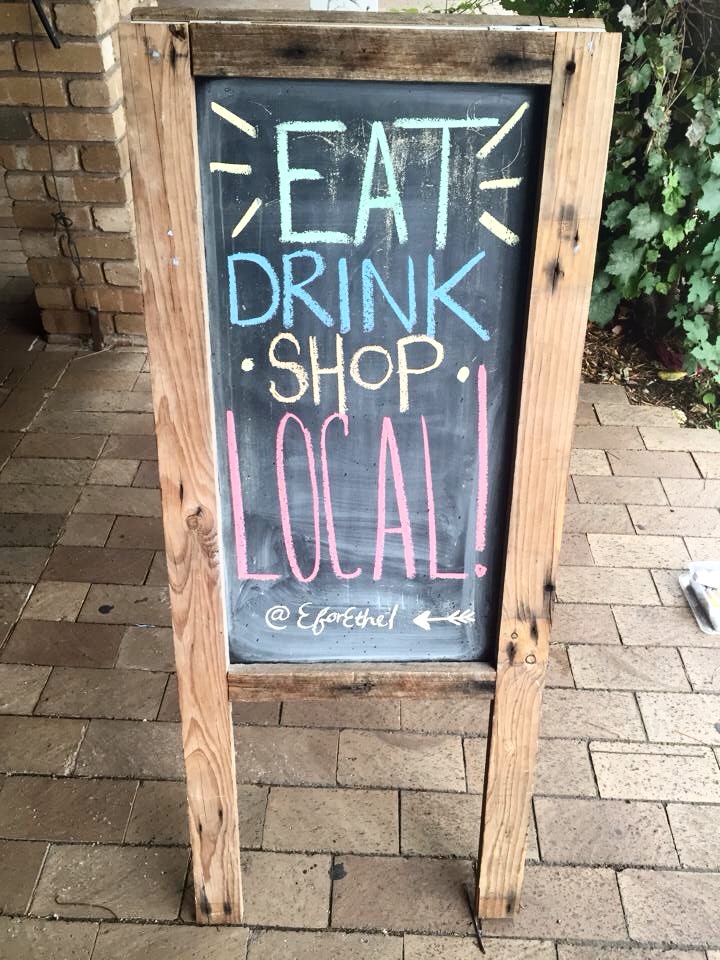 EAT
DRINK
• SHOP •
LOCAL!
@ EforEthel